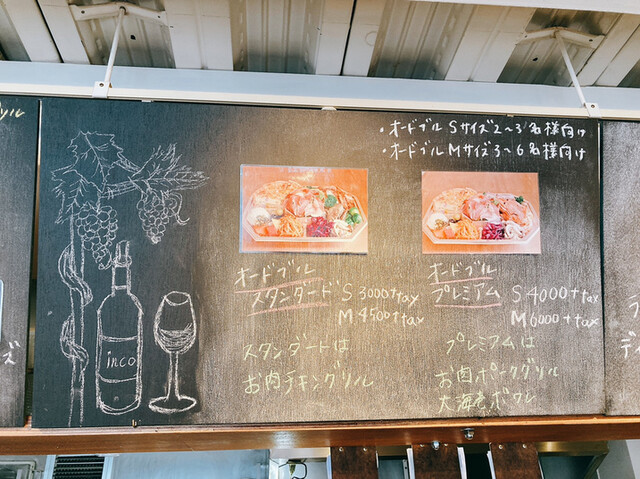 ・オードブル Sサイズ2〜3名様向け
・オードブル Mサイズ3〜6名様向け
オードブル
スタンダード S 3000+tax
M 4500+tax
スタンダードは
お肉チキングリル
オードブル
プレミアム S 4000+tax
M 6000+tax
プレミアムは
お肉ポークグリル
大海老ボワレ
inco